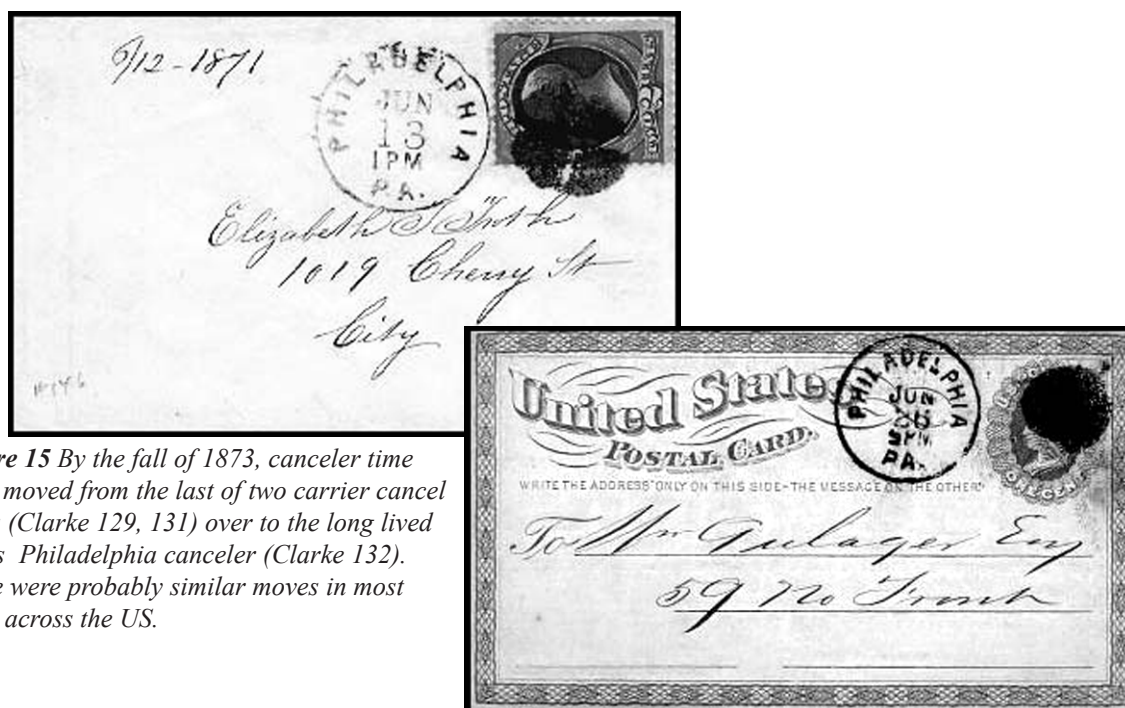 6/12 - 1871
PHILADELPHIA
JUN
13
1PM
PA.
POSTAGE
Elizabeth S
1019 Cherry St
City
PHILADELPHIA
JUN
5PM
PA.
United States
POSTAL CARD.
WRITE THE ADDRESS ONLY ON THIS SIDE-THE MESSAGE ON THE OTHER
ONE CENT
To Wm Gulager Esq
59 No Front
re 15 By the fall of 1873, canceler time
moved from the last of two carrier cancel
(Clarke 129, 131) over to the long lived
s Philadelphia canceler (Clarke 132).
e were probably similar moves in most
across the US.